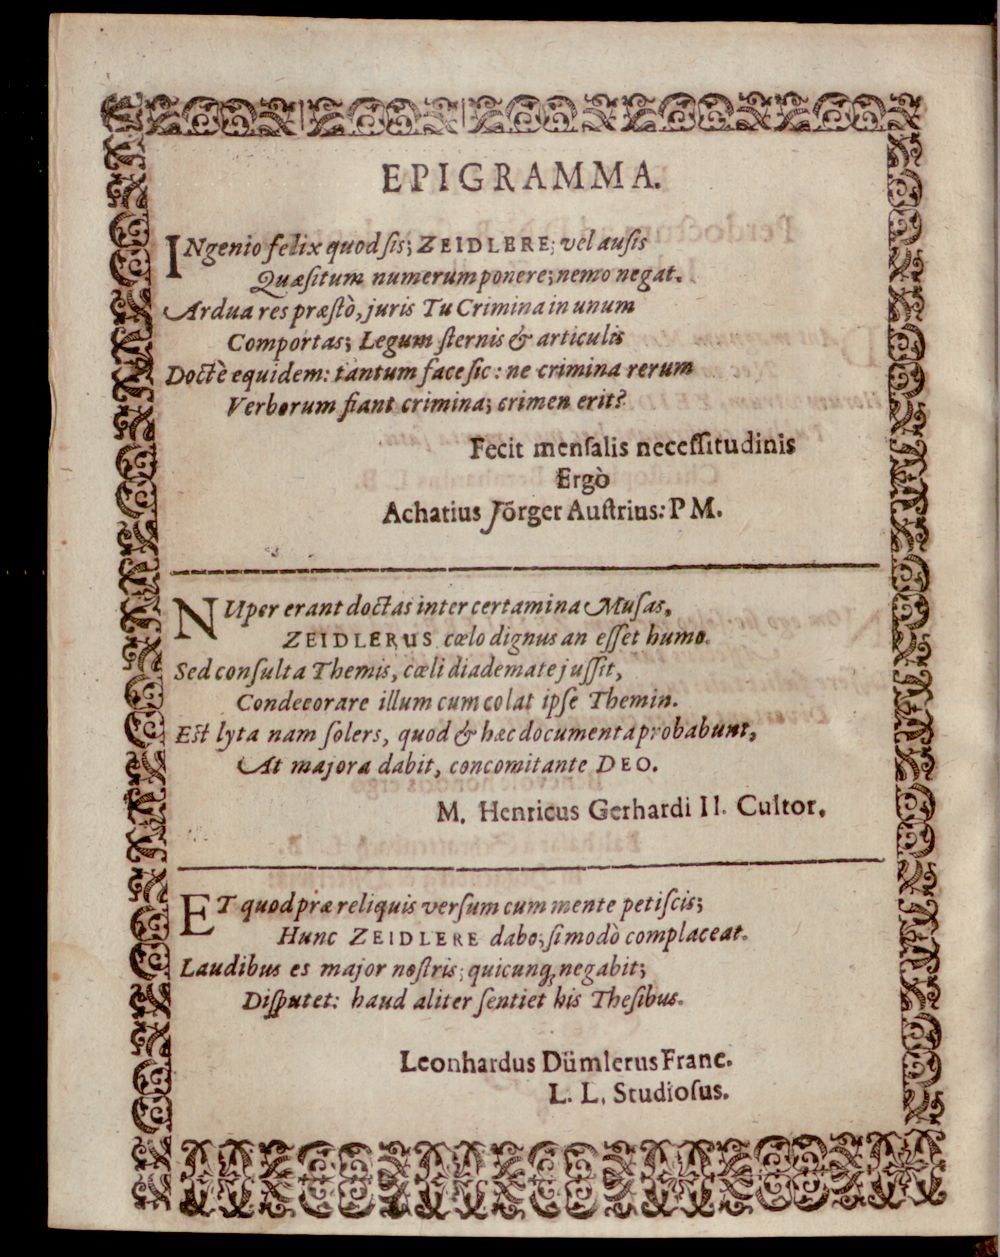 EPIGRAMMA.
INgenio felix quod ſis; ZEIDLERE; vel auſis
Quæſitum numerum ponere; nemo negat.
Ardua res præſtò, juris Tu Crimina in unum
Comportas; Legum ſternis & articulis
Doctè equidem: tantum face ſic: ne crimina rerum
Verborum fiant crimina; crimen erit?
Fecit menſalis neceſſitudinis
Ergò
Achatius Jörger Auſtrius: P M.
NUper erant doctas inter certamina Muſas,
ZEIDLERUS cœlo dignus an eſſet humo.
Sed conſulta Themis, cœli diademate juſſit,
Condecorare illum cum colat ipſe Themin.
Eſt lyta nam ſolers, quod & hæc documenta probabunt,
At majora dabit, concomitante DEO.
M. Henricus Gerhardi II. Cultor.
ET quod præ reliquis verſum cum mente petiſcis;
Hunc ZEIDLERE dabo; ſi modò complaceat.
Laudibus es major noſtris; quicunq; negabit;
Diſputet: haud aliter ſentiet his Theſibus.
Leonhardus Dümlerus Franc.
L. L. Studioſus.